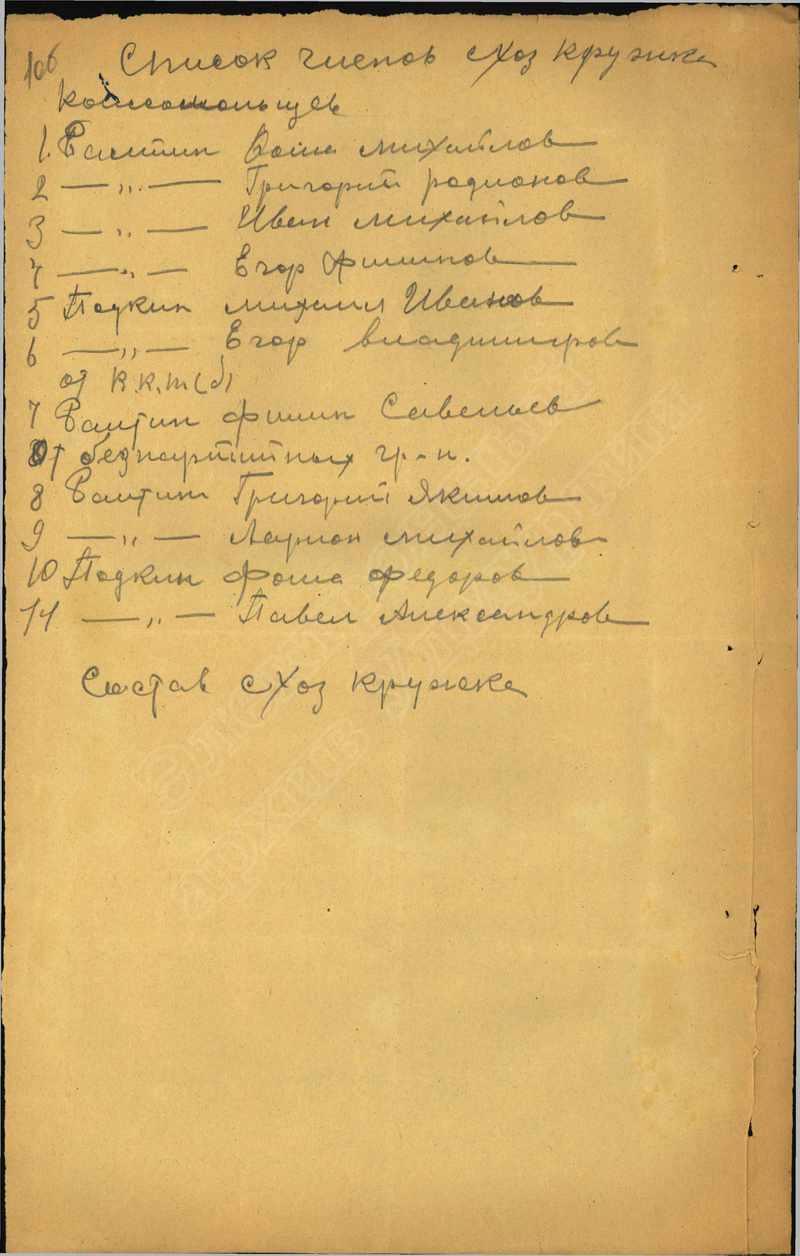 106 Список членов с/хоз кружка
комсомольцев
1. Михайлов
2 — „ — Григорий Родионов
3 — „ — Иван Михайлов
4 — „ — Егор Филипов
5 Подкин Михаил Иванов
6 — „ — Егор Владимиров
от
7 Филип Савельев
От безпартийных гр-н.
8 Григорий Якимов
9 — „ — Ларион Михайлов
10 Подкин Фома Федоров
11 — „ — Павел Александров
Состав с/хоз кружка